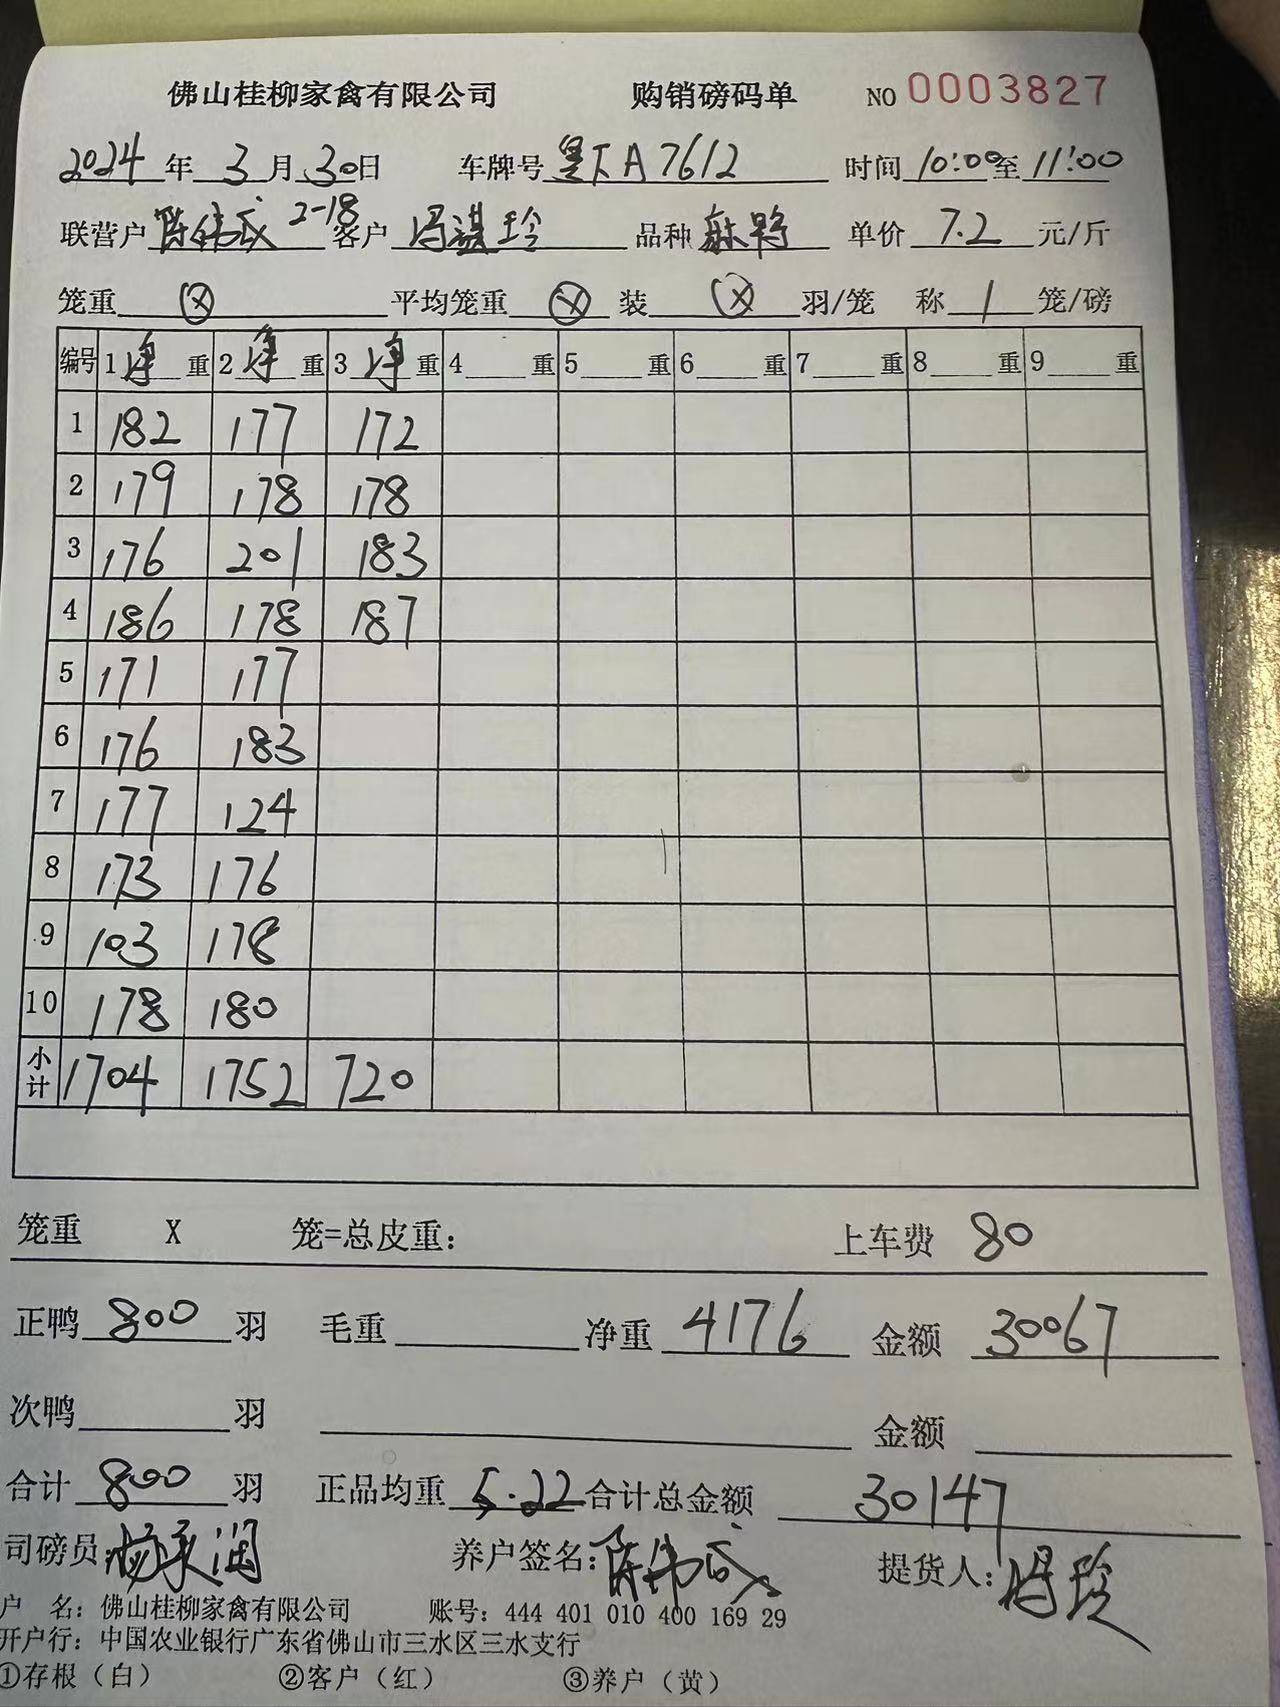 佛山桂柳家禽有限公司 购销磅码单 NO 0003827
2024年3月30日 车牌号 粤 A7612 时间10:00至11:00
联营户 陈伟成 2-18 客户 冯淇玲 品种 麻鸭 单价 7.2 元/斤
笼重 ⊗ 平均笼重 ⊗ 装 ⊗ 羽/笼 称 1 笼/磅
编号 1净重 2净重 3净重 4 重 5 重 6 重 7 重 8 重 9 重
1 182 177 172
2 179 178 178
3 176 201 183
4 186 178 187
5 171 177
6 176 183
7 177 124
8 173 176
9 103 178
10 178 180
小计 1704 1752 720
笼重 X 笼=总皮重: 上车费 80
正鸭 800 羽 毛重 净重 4176 金额 30067
次鸭 羽 金额
合计 800 羽 正品均重 5.22 合计总金额 30147
司磅员: 养户签名: 陈伟成 提货人: 冯玲
户 名: 佛山桂柳家禽有限公司 账号: 444 401 010 400 169 29
开户行: 中国农业银行广东省佛山市三水区三水支行
①存根（白） ②客户（红） ③养户（黄）